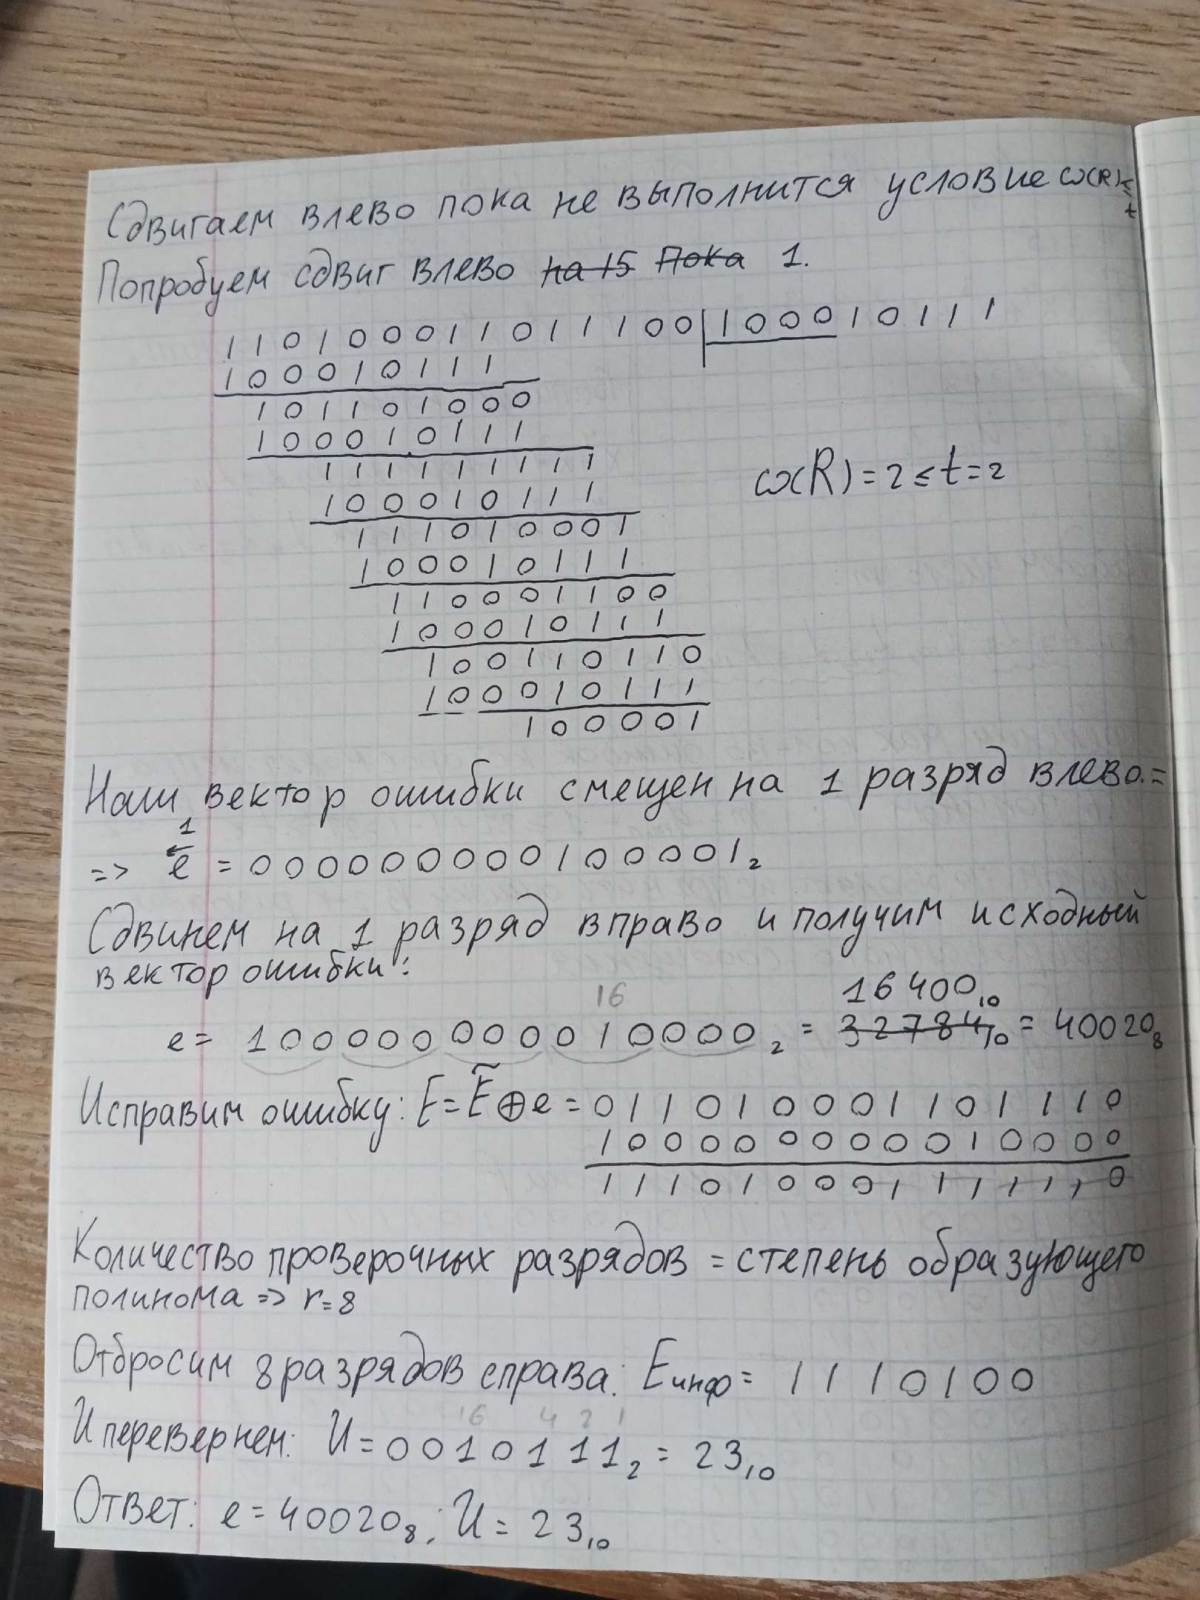 Сдвигаем влево пока не выполнится условие ω(R)≤t
Попробуем сдвиг влево на 15 Пока 1.
110100011011100 100010111
100010111
101101000
100010111
111111111
100010111
111010001
100010111
110001100
100010111
100110110
100010111
100001
ω(R)=2≤t=2
Наш вектор ошибки смещен на 1 разряд влево.=
1
=> e = 000000000100001₂
Сдвинем на 1 разряд вправо и получим исходный
вектор ошибки:
16
16400₁₀
e= 100000000010000₂ = 32784₁₀ = 40020₈
Исправим ошибку: E=Ẽ⊕e = 011010001101110
100000000010000
111010001111110
Количество проверочных разрядов = степень образующего
полинома => r=8
Отбросим 8 разрядов справа: Eинф= 1110100
16 4 2 1
И перевернем: И=0010111₂ = 23₁₀
Ответ: e=40020₈; И=23₁₀